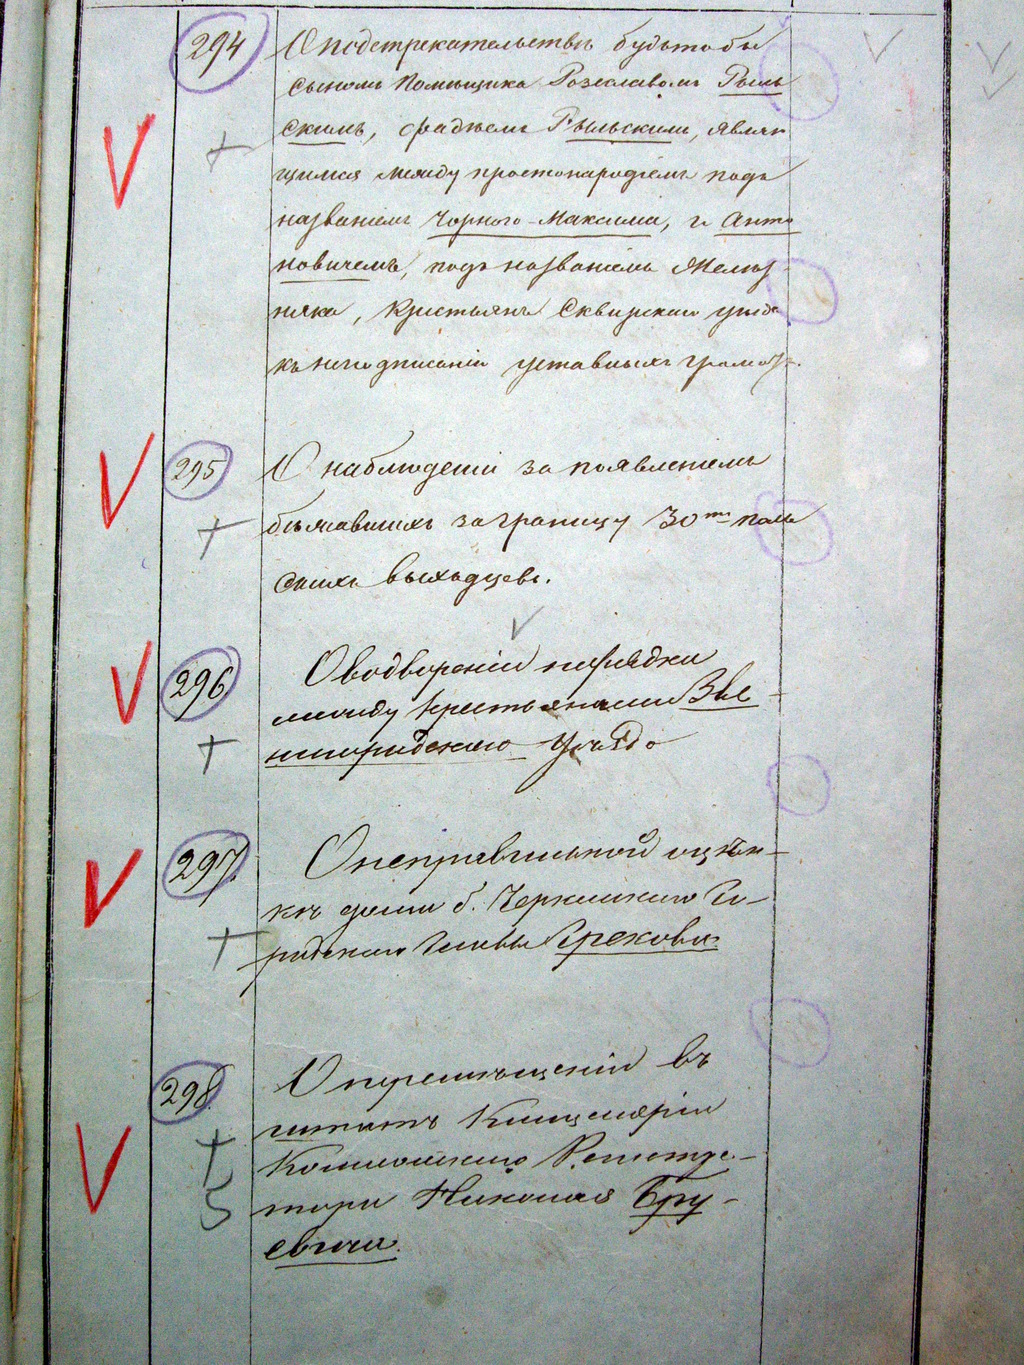 294
О подстрекательствѣ будьтобы
сыномъ помѣщика Розеславомъ Рыль
скимъ, фаддѣемъ Рыльскимъ, являю
щимся между простонародіемъ подъ
названіемъ Чорного-Максима, и Анто
новичемъ, подъ названіемъ Желѣз-
няка, Крестьянъ Сквирскаго уѣзда
къ неподписанію уставныхъ грамотъ.
295
О наблюденіи за появленіемъ
бѣжавшихъ заграницу 30ти поль
скихъ выходцевъ.
296
О водвореніи порядка
между крестьянами Зве-
нигородскаго уѣзда
297.
О неправильной оцѣн-
кѣ дома б. Черкаскаго Го-
родскаго Главы Грекова
298.
О перемѣщеніи въ
штатъ Канцеляріи
Коллежскаго Регистра-
тора Николая Бру-
евича.